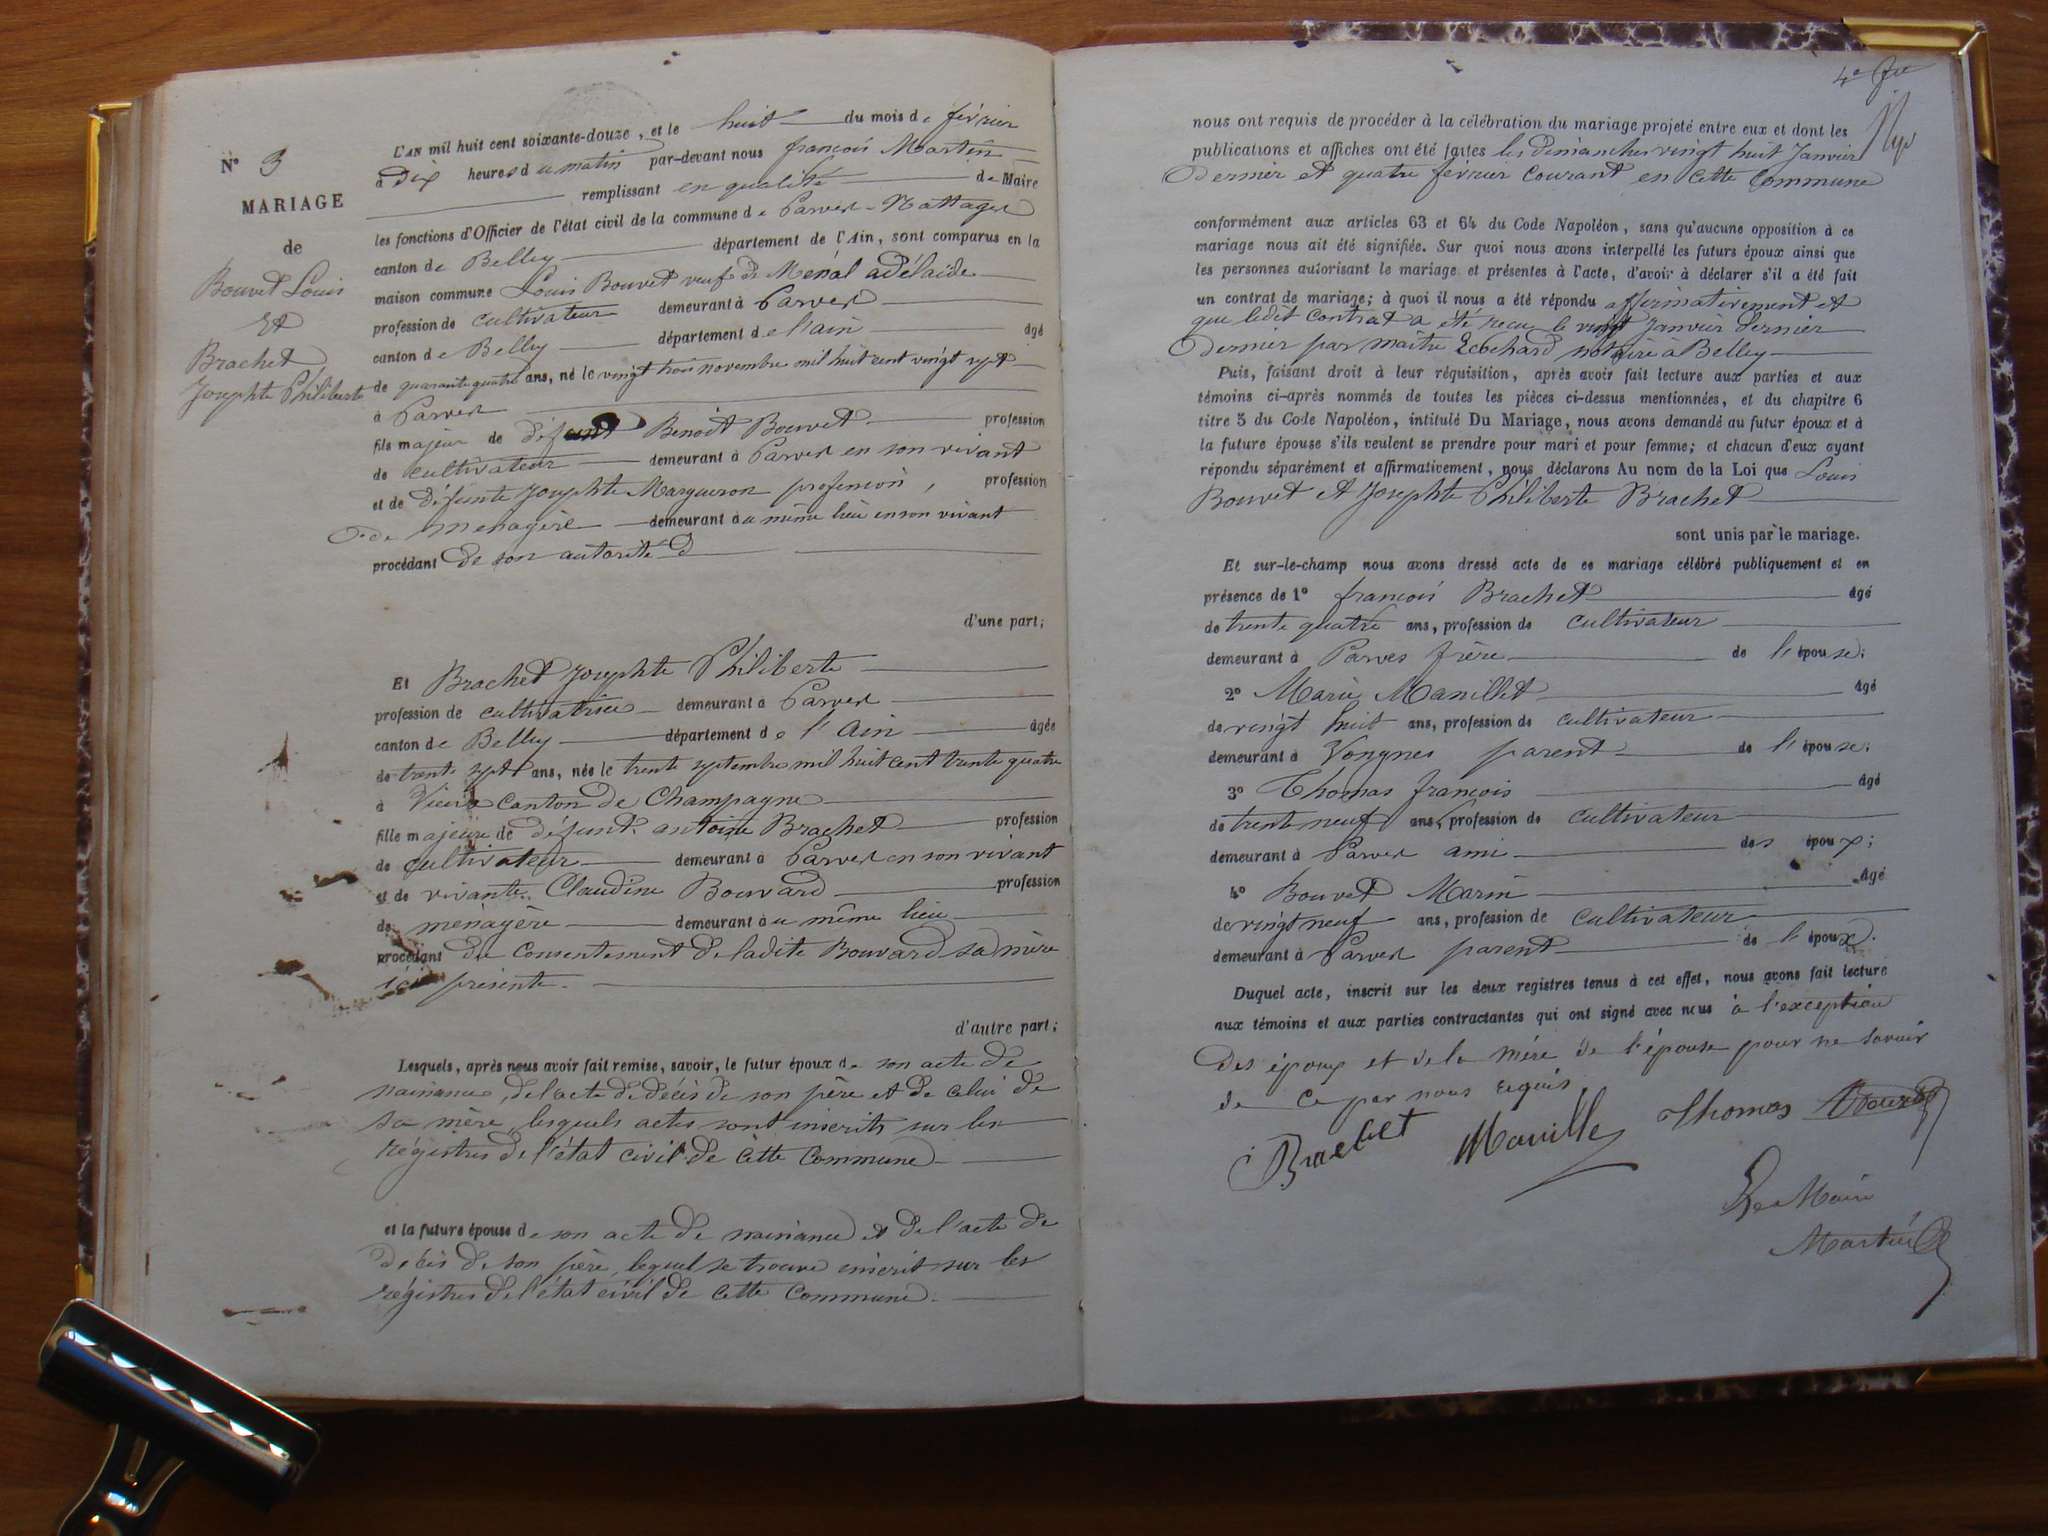 N° 3
MARIAGE
de
Bouvet Louis
Et
Brachet
Josephte Philiberte
L'AN mil huit cent soixante-douze, et le huit du mois de février
à Dix heures du matin par-devant nous françois Martin
remplissant en qualité de Maire
les fonctions d'Officier de l'état civil de la commune de Parves-Nattages
canton de Belley département de l'Ain, sont comparus en la
maison commune Louis Bouvet veuf de adélaide
profession de cultivateur demeurant à Parves
canton de Belley département de l'ain âgé
de quarante quatre ans, né le vingt trois novembre mil huit cent vingt sept
à Parves
fils majeur de défunt Benoit Bouvet profession
de cultivateur demeurant à Parves en son vivant
et de défunte Josephte Margueron profession, profession
de menagère demeurant au même lieu en son vivant
procédant de son autorité d
d'une part;
Et Brachet Josephte Philiberte
profession de cultivatrice demeurant à Parves
canton de Belley département de l'Ain âgée
de trente sept ans, née le trente septembre mil huit cent trente quatre
à canton de Champagne
fille majeure de défunt antoine Brachet profession
de cultivateur demeurant à Parves en son vivant
et de vivante Claudine Bouvard profession
de menagère demeurant au même lieu
procédant du consentement de ladite Bouvard sa mère
ici présente.
d'autre part;
Lesquels, après nous avoir fait remise, savoir, le futur époux de son acte de
naissance, de l'acte de décès de son père et de celui de
sa mère, lesquels actes sont inscrits sur les
régistres de l'état civil de cette commune
et la future épouse de son acte de naissance et de l'acte de
décès de son père, lequel se trouve inscrit sur les
régistres de l'état civil de cette commune.
nous ont requis de procéder à la célébration du mariage projeté entre eux et dont les
publications et affiches ont été faites les dimanches vingt huit Janvier
Dernier et quatre février courant en cette commune
conformément aux articles 63 et 64 du Code Napoléon, sans qu'aucune opposition à ce
mariage nous ait été signifiée. Sur quoi nous avons interpellé les futurs époux ainsi que
les personnes autorisant le mariage et présentes à l'acte, d'avoir à déclarer s'il a été fait
un contrat de mariage; à quoi il nous a été répondu affirmativement et
que ledit contrat a été reçu le vingt Janvier dernier
dernier par maître notaire à Belley
Puis, faisant droit à leur réquisition, après avoir fait lecture aux parties et aux
témoins ci-après nommés de toutes les pièces ci-dessus mentionnées, et du chapitre 6
titre 5 du Code Napoléon, intitulé Du Mariage, nous avons demandé au futur époux et à
la future épouse s'ils veulent se prendre pour mari et pour femme; et chacun d'eux ayant
répondu séparément et affirmativement, nous déclarons Au nom de la Loi que Louis
Bouvet et Josephte Philiberte Brachet
sont unis par le mariage.
Et sur-le-champ nous avons dressé acte de ce mariage célébré publiquement et en
présence de 1° françois Brachet âgé
de trente quatre ans, profession de cultivateur
demeurant à Parves frère de l'épouse;
2° Marie Manillet âgé
de vingt huit ans, profession de cultivateur
demeurant à Vongnes parent de l'épouse;
3° Thomas françois âgé
de trente neuf ans, profession de cultivateur
demeurant à Parves ami des époux;
4° Bouvet Marin âgé
de vingt neuf ans, profession de cultivateur
demeurant à Parves parent de l'époux.
Duquel acte, inscrit sur les deux registres tenus à cet effet, nous avons fait lecture
aux témoins et aux parties contractantes qui ont signé avec nous à l'exception
des époux et de la mère de l'épouse pour ne savoir
de ce par nous requis
Brachet Thomas Bouvet
Le Maire
Martin